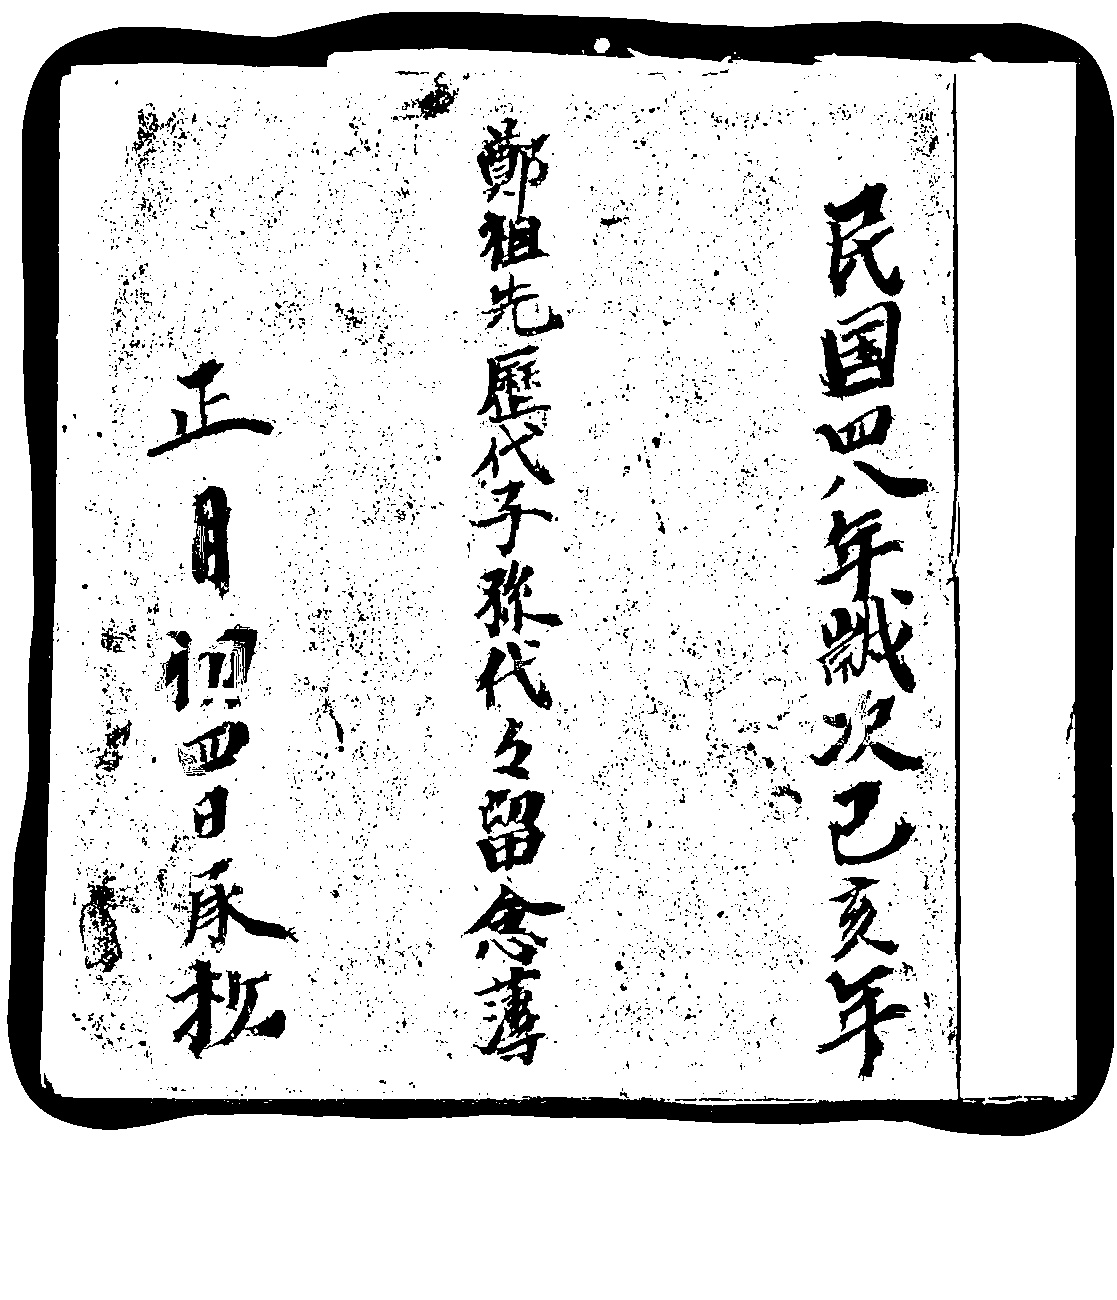 民国四八年歲次己亥年
鄭祖先歷代子孫代々留念薄
正月初四日承抄